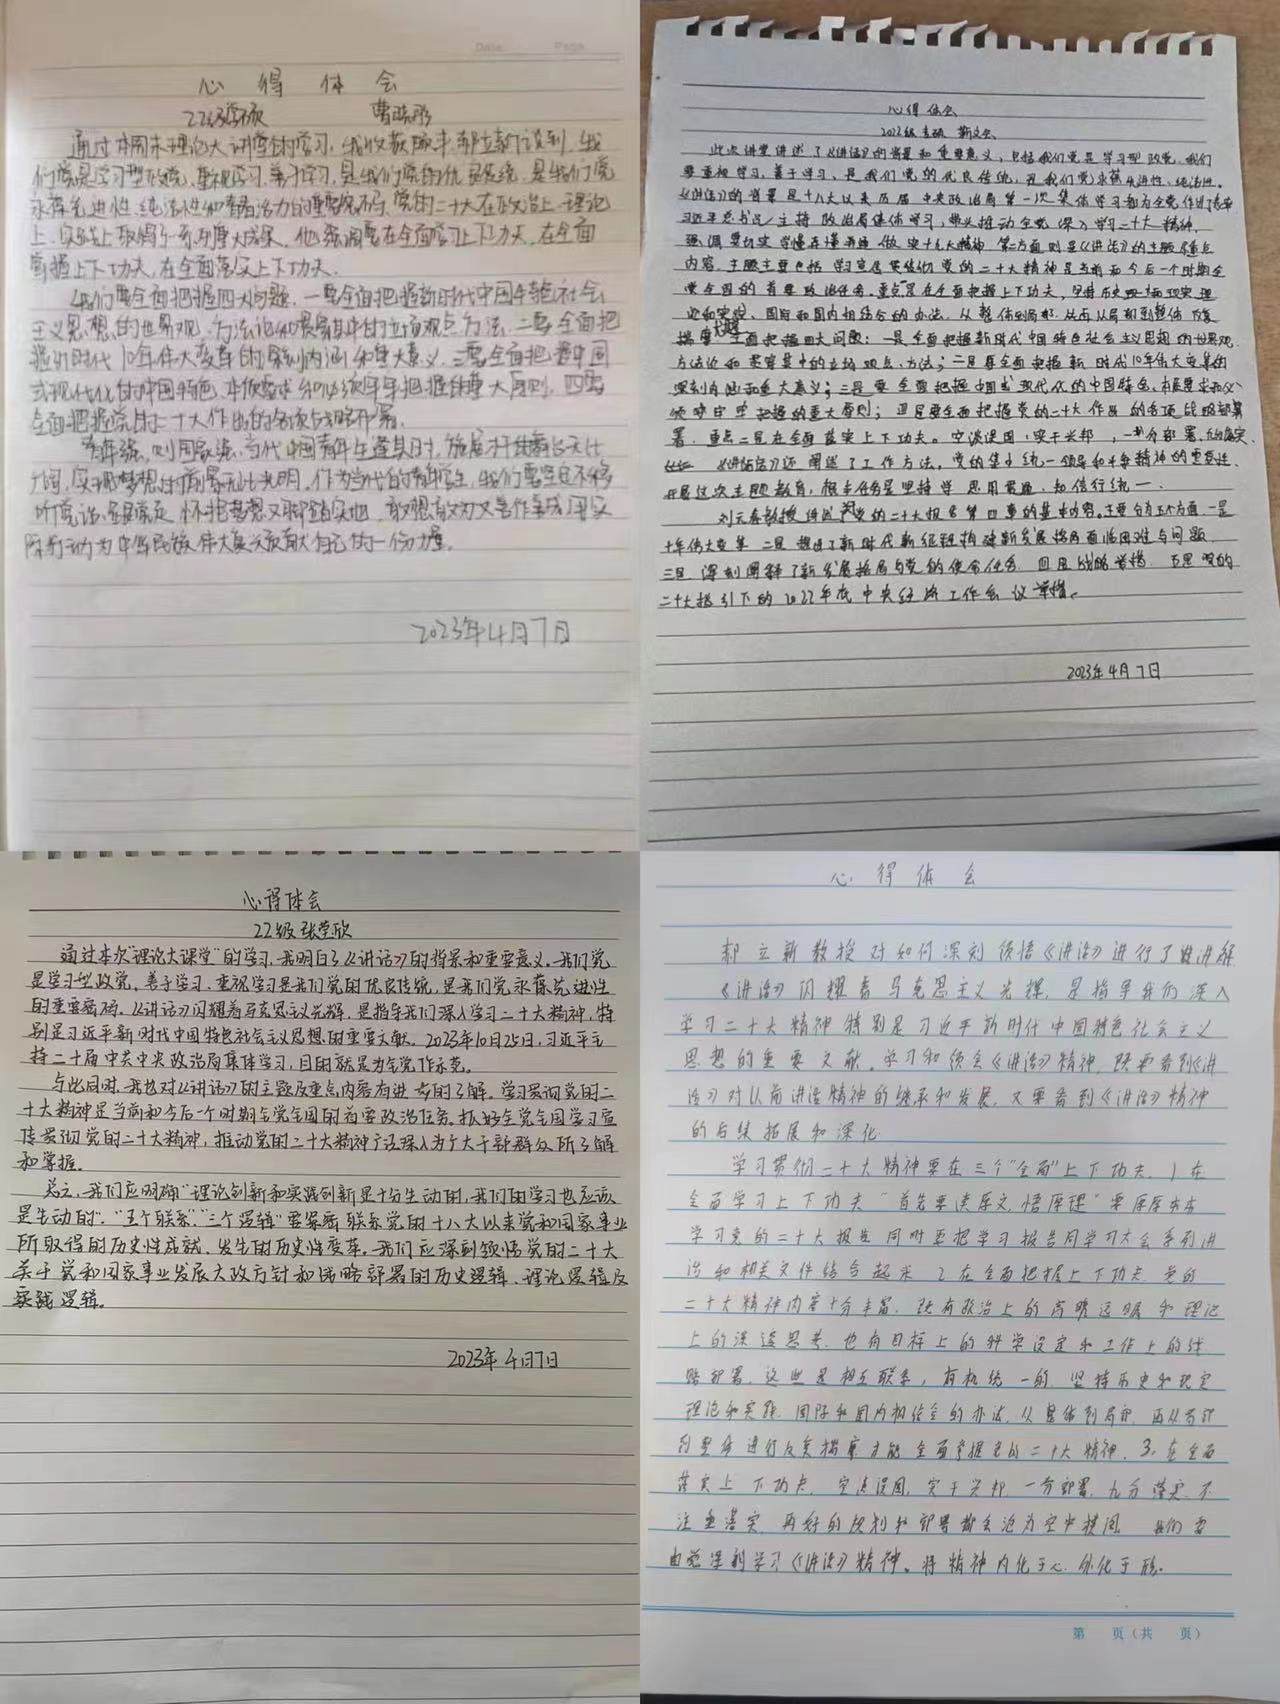 心得体会
22级学硕 曹晓彤
通过本周末理论大讲堂的学习，我收获颇丰，郝立新谈到，我
们党是学习型政党，重视学习、善于学习，是我们党的优良传统，是我们党
永葆先进性、纯洁性和蓬勃活力的重要密码。党的二十大在政治上、理论
上、实践上取得了一系列重大成果。他强调要在全面学习上下功夫，在全面
把握上下功夫，在全面落实上下功夫。
我们要全面把握四大问题，一要全面把握新时代中国特色社会
主义思想的世界观、方法论和贯穿其中的立场观点方法，二要全面把
握新时代10年伟大变革的深刻内涵和重大意义，三要全面把握中国
式现代化的中国特色、本质要求和必须牢牢把握的重大原则，四要
全面把握党的二十大作出的各项战略部署。
青年强，则国家强。当代中国青年生逢其时，施展才干的舞台无比
广阔，实现梦想的前景无比光明。作为当代的青年学生，我们要坚定不移
听党话、跟党走，怀抱梦想又脚踏实地，敢想敢为又善作善成，用实
际行动为中华民族伟大复兴贡献自己的一份力量。
2023年4月7日
心得体会
2022级 靳文会
此次讲堂讲述了《讲话》的背景和重要意义，包括我们党是学习型政党，我们
党重视学习，善于学习，是我们党的优良传统，是我们党永葆先进性、纯洁性。
《讲话》的背景是十八大以来历届中央政治局第一次集体学习都为全党作过了表率
习近平总书记主持政治局集体学习，带头推动全党深入学习二十大精神，
强调要切实学懂弄懂弄通做实十九大精神 第二方面则是《讲话》的主题和重点
内容，主题主要包括学习宣传贯彻党的二十大精神是当前和今后一个时期全
党全国的首要政治任务，重点一是在全面把握上下功夫，坚持历史和现实理
论和实践、国际和国内相结合的办法，从整体到局部，从而从局部到整体反复
揣摩 全面把握四大问题：一是全面把握新时代中国特色社会主义思想的世界观
方法论和贯穿其中的立场观点、方法；二是要全面把握新时代10年伟大变革的
深刻内涵和重大意义；三是要全面把握中国式现代化的中国特色、本质要求和必
须牢牢把握的重大原则；四是要全面把握党的二十大作出的各项战略部
署，重点二是在全面落实上下功夫。空谈误国，实干兴邦，一分部署，九分落实
《讲话》还阐述了工作方法，党的集中统一领导和斗争精神的重要性，
开展这次主题教育，根本任务是坚持学思用贯通、知信行统一。
刘元春教授讲述了党的二十大报告第四章的基本内容。主要分为五个方面，一是
十年伟大变革 二是提出了新时代新征程构建新发展格局面临困难与问题，
三是深刻阐释了新发展格局与党的使命任务 四是战略举措 五是党的
二十大指引下的2022年底中央经济工作会议举措。
2023年4月7日
心得体会
22级 张莹欣
通过本次“理论大课堂”的学习，我明白了《讲话》的背景和重要意义。我们党
是学习型政党，善于学习、重视学习是我们党的优良传统，是我们党永葆先进性
的重要密码。《讲话》闪耀着马克思主义光辉，是指导我们深入学习二十大精神，特
别是习近平新时代中国特色社会主义思想的重要文献。2023年10月25日，习近平主
持二十届中共中央政治局集体学习，目的就是为全党作示范。
与此同时，我也对《讲话》的主题及重点内容有进一步的了解。学习贯彻党的二
十大精神是当前和今后一个时期全党全国的首要政治任务。抓好全党全国学习宣
传贯彻党的二十大精神，推动党的二十大精神广泛深入为广大干部群众所了解
和掌握。
总之，我们应明确“理论创新和实践创新是十分生动的，我们的学习也应该
是生动的”。“五个联系”“三个逻辑”要紧密联系党的十八大以来党和国家事业
所取得的历史性成就、发生的历史性变革。我们应深刻领悟党的二十大
关于党和国家事业发展大政方针和战略部署的历史逻辑、理论逻辑及
实践逻辑。
2023年4月7日
心得体会
郝立新教授对如何深刻领悟《讲话》进行了推讲解
《讲话》闪耀着马克思主义光辉，是指导我们深入
学习二十大精神特别是习近平新时代中国特色社会主义
思想的重要文献。学习和领会《讲话》精神，既要看到《讲
话》对以前讲话精神的继承和发展，又要看到《讲话》精神
的后续拓展和深化
学习贯彻二十大精神要在三个“全面”上下功夫。1.在
全面学习上下功夫“首先要读原文，悟原理”要原原本本
学习党的二十大报告同时要把学习报告同学习大会系列讲
话和相关文件结合起来 2.在全面把握上下功夫 党的
二十大精神内容十分丰富，既有政治上的高瞻远瞩和理论
上的深邃思考，也有目标上的科学设定和工作上的战
略部署，这些是相互联系，有机统一的，坚持历史和现实
理论和实践、国际和国内相结合的办法，从整体到局部，再从局部
到整体进行反复揣摩才能全面掌握党的二十大精神，3.在全面
落实上下功夫，空谈误国，实干兴邦，一分部署，九分落实，不
注重落实，再好的规划和部署都会沦为空中楼阁。我们要
由此深刻学习《讲话》精神。将精神内化于心，外化于形。
第 页（共 页）